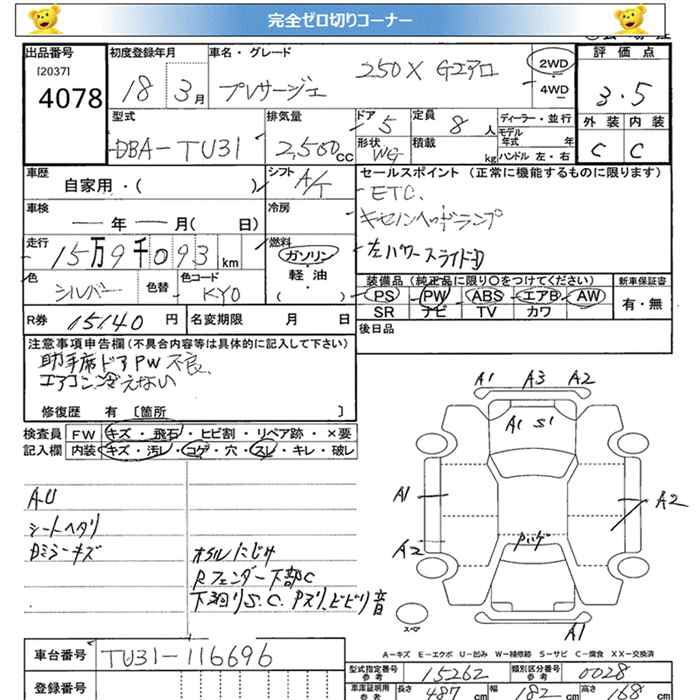 完全ゼロ切りコーナー
出品番号 初度登録年月 車名・グレード 2WD 評価点
[2037] 250X Gエアロ
4078 18 3月 プレサージュ 4WD 3.5
型式 排気量 ドア 5 定員 8人 ディーラー・並行 外装 内装
DBA-TU31 2,500cc 形状 WG 積載 kg モデル年式 年 ハンドル 左・右 C C
車歴 シフト セールスポイント (正常に機能するものに限ります)
自家用・( ) A/T ETC.
車検 冷房 キセノンヘッドランプ
ー年ー月( 日) 左パワースライドD
走行 燃料
15万9千093km ガソリン
軽油
( )
色 色替 色コード 装備品 (純正品に限り○をつけてください) 新車保証書
シルバー KY0 PS PW ABS エアB AW 有・無
SR ナビ TV カワ
R券 15140円 名変期限 月 日 後日品
注意事項申告欄(不具合内容等は具体的に記入して下さい)
助手席ドアPW不良、
エアコン冷えない
修復歴 有 [箇所 ]
検査員 FW キズ・飛石・ヒビ割・リペア跡・×要
記入欄 内装 キズ・汚レ・コゲ・穴・スレ・キレ・破レ
A1 A3 A2
A1 S1
A1 A2
A2
A.U
シートヘタリ
Dミラーキズ オイルにじみ
Rフェンダー下部C
下廻りS.C. Pズリ、ビビリ音
スペア A1
A-キズ E-エクボ U-凹み W-補修跡 S-サビ C-腐食 XX-交換済
車台番号 TU31-116696
型式指定番号 参考 15262 類別区分番号 参考 0028
登録番号 車庫証明用 参考 長さ 487cm 幅 182cm 高さ 168cm